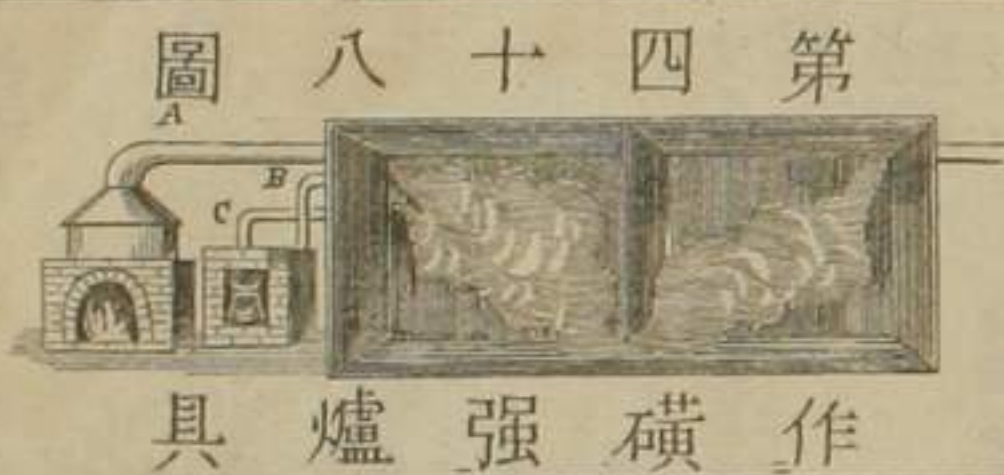 第四十八圖
A
B
C
作磺强爐具